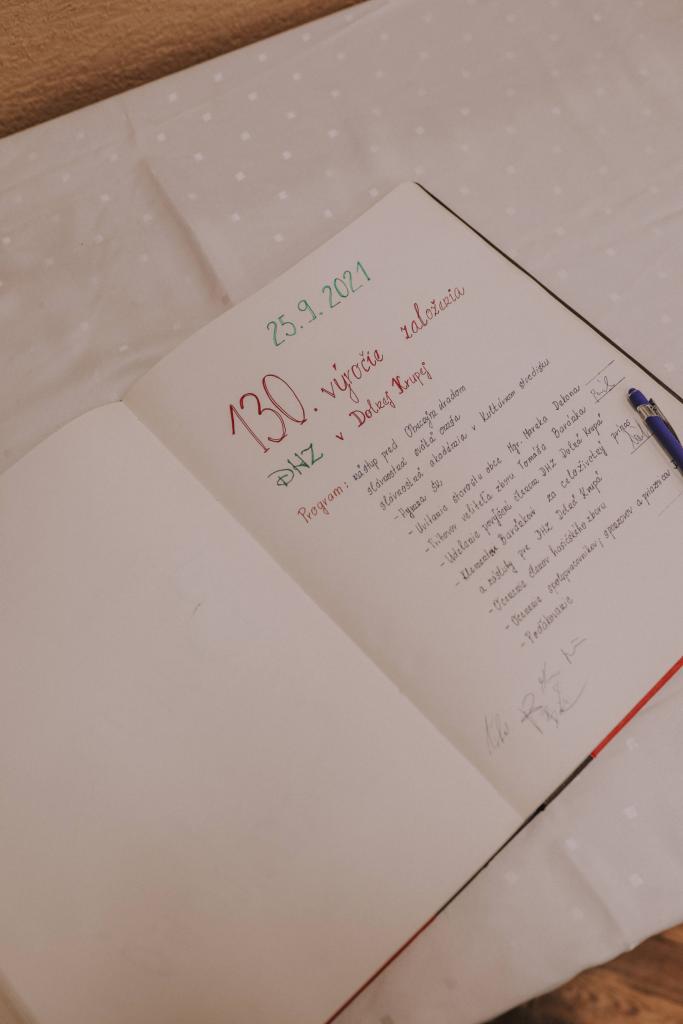 25.9.2021
130. výročie založenia
DHZ v Dolnej Krupej
Program: nástup pred Obecným úradom
slávnostná svätá omša
slávnostná akadémia v Kultúrnom stredisku
- Hymna SR
- Uvítanie starostu obce Mgr. Mareka Dekana
- Príhovor veliteľa zboru Tomáša Baráska
- Udelenie povýšení členom DHZ Dolná Krupá
- Klementovi Baráskovi za celoživotný prínos
a zásluhy pre DHZ Dolná Krupá
- Ocenenie členov hasičského zboru
- Ocenenie spolupracovníkov, sponzorov a priaznivcov
- Poďakovanie